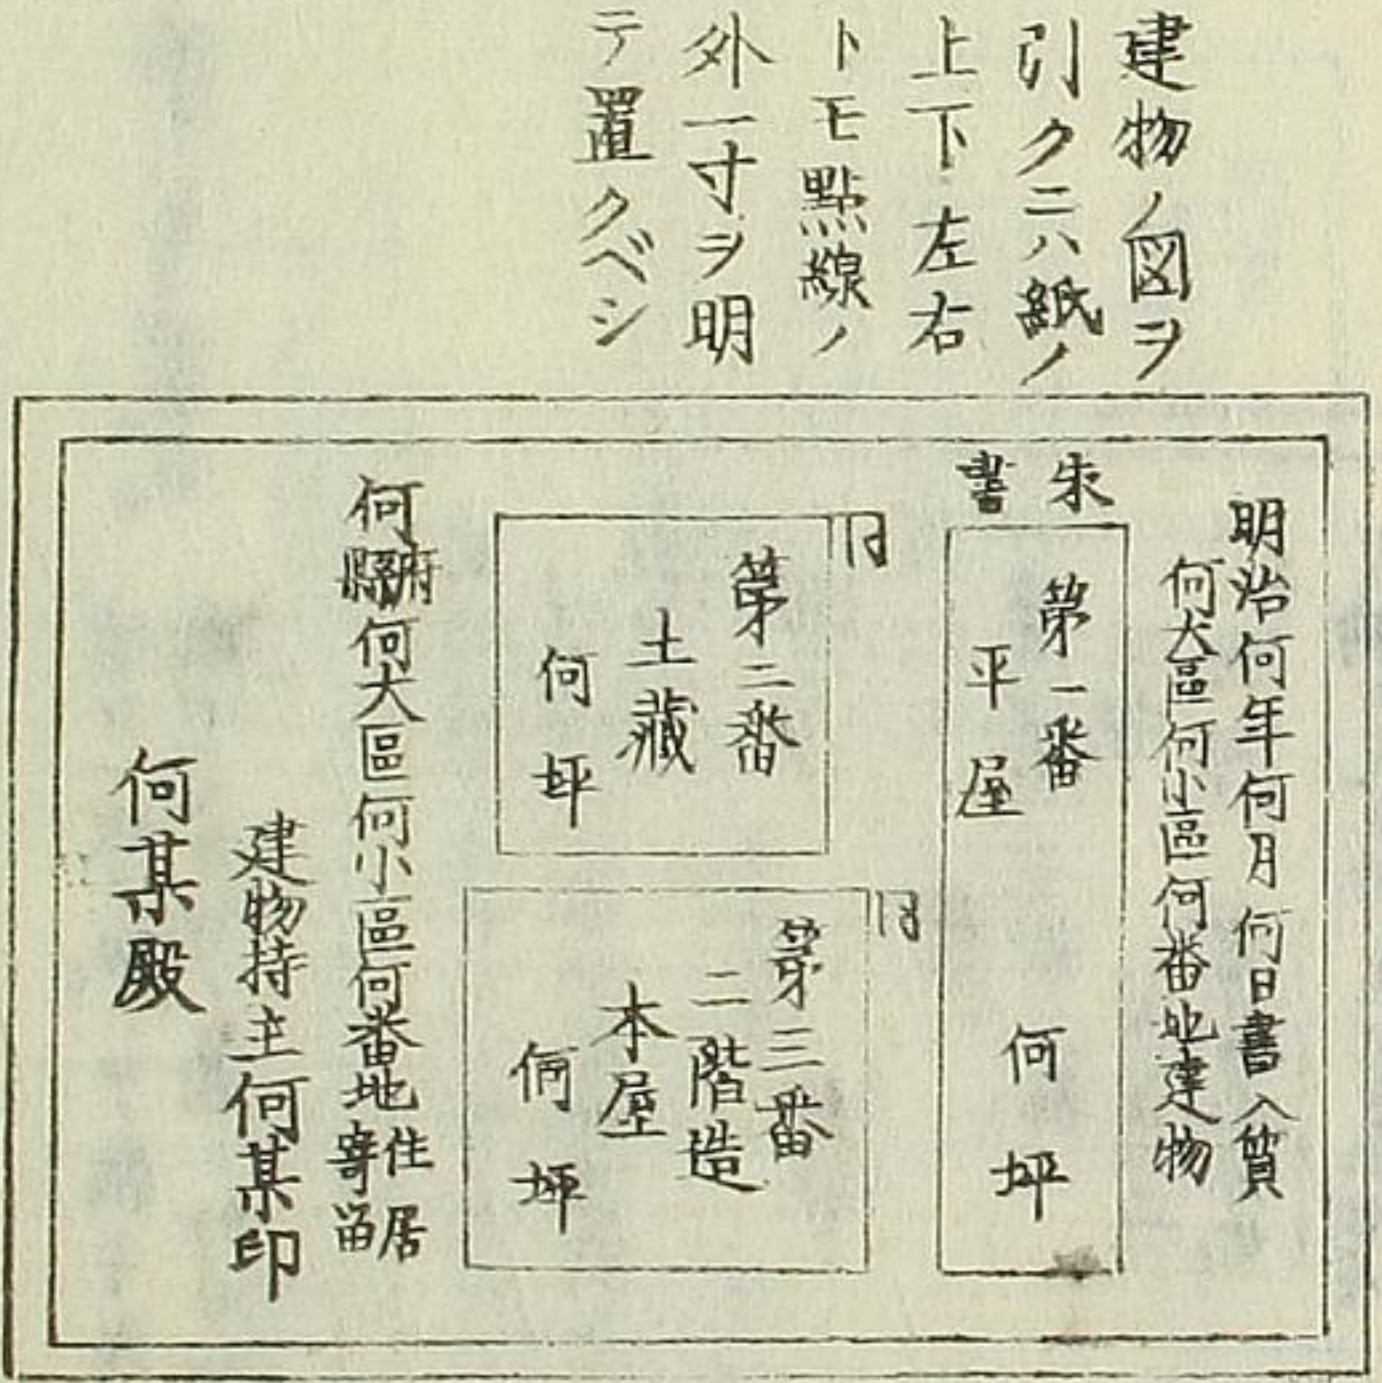 建物ノ図ヲ
引クニハ紙ノ
上下左右
トモ點線ノ
外一寸ヲ明
テ置クベシ
明治何年何月何日書入質
何大區何小區何番地建物
朱
書
第一番
平屋
何坪
同
第二番
土藏
何坪
同
第三番
二階造
本屋
何坪
何府縣何大區何小區何番地住居寄留
建物持主何某印
何某殿